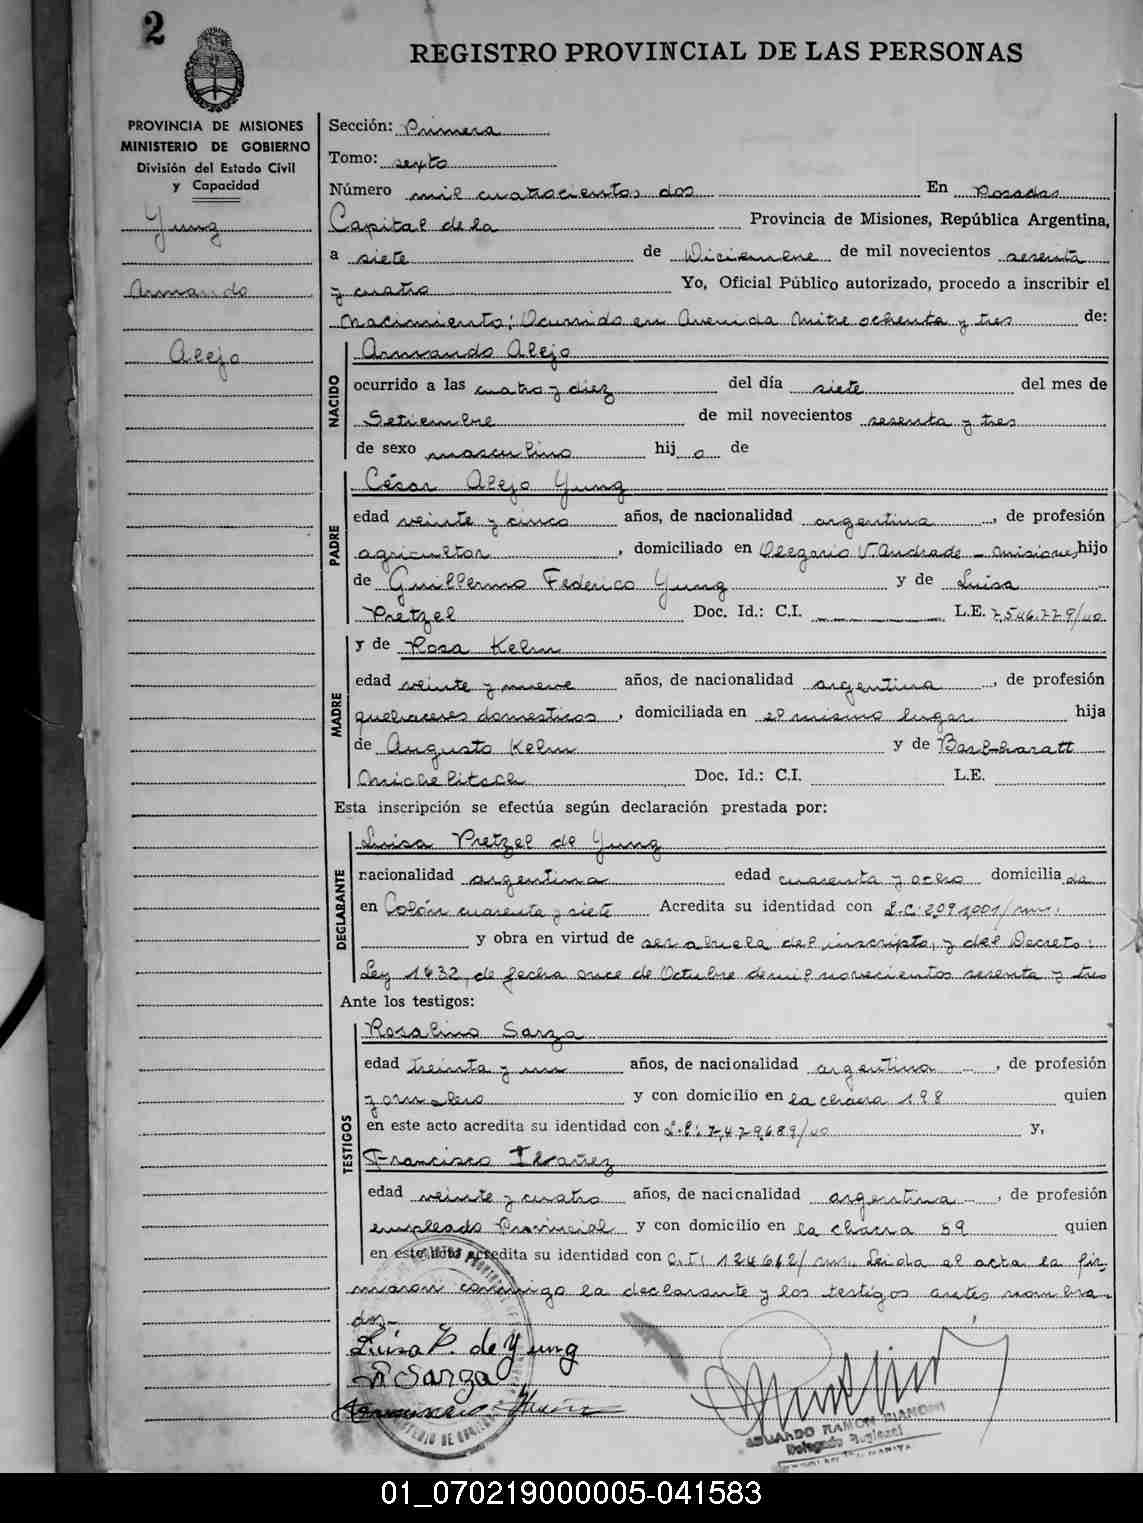 2
REGISTRO PROVINCIAL DE LAS PERSONAS
PROVINCIA DE MISIONES
MINISTERIO DE GOBIERNO
División del Estado Civil
y Capacidad
Yung
Armando
Alejo
Sección: Primera
Tomo: sexto
Número mil cuatrocientos dos En Posadas
Capital de la Provincia de Misiones, República Argentina,
a siete de Diciembre de mil novecientos sesenta
y cuatro Yo, Oficial Público autorizado, procedo a inscribir el
Nacimiento; Ocurrido en Avenida Mitre ochenta y tres de:
NACIDO
Armando Alejo
ocurrido a las cuatro y diez del día siete del mes de
Setiembre de mil novecientos sesenta y tres
de sexo masculino hij o de
PADRE
César Alejo Yung
edad veinte y cinco años, de nacionalidad argentina, de profesión
agricultor, domiciliado en Olegario V. Andrade - Misiones hijo
de Guillermo Federico Yung y de Luisa
Pretzel Doc. Id.: C.I. L.E. 7.546.779/
MADRE
y de Rosa Kelm
edad veinte y nueve años, de nacionalidad argentina, de profesión
quehaceres domesticos, domiciliada en el mismo lugar hija
de Augusto Kelm y de
Michelitsch Doc. Id.: C.I. L.E.
Esta inscripción se efectúa según declaración prestada por:
DECLARANTE
Luisa Pretzel de Yung
nacionalidad argentina edad cuarenta y ocho domicilia da
en Colón cuarenta y siete Acredita su identidad con L.C.
y obra en virtud de ser abuela del inscripto, y del Decreto:
Ley 1632, de fecha once de Octubre de mil novecientos sesenta y tres
Ante los testigos:
TESTIGOS
Rosalino Sarza
edad treinta y un años, de nacionalidad argentina, de profesión
jornalero y con domicilio en la chacra 198 quien
en este acto acredita su identidad con L.E: 7,479,689/ y,
Francisco Ibañez
edad veinte y cuatro años, de nacionalidad argentina, de profesión
empleado Provincial y con domicilio en la chacra 59 quien
en este acto acredita su identidad con C.I: 124662/ Leida el acta la fir-
maron conmigo la declarante y los testigos antes nombra-
dos.-
Luisa P. de Yung
R Sarza
Francisco Ibañez
EDUARDO RAMON BIANCHI
Delegado Regional
01_070219000005-041583